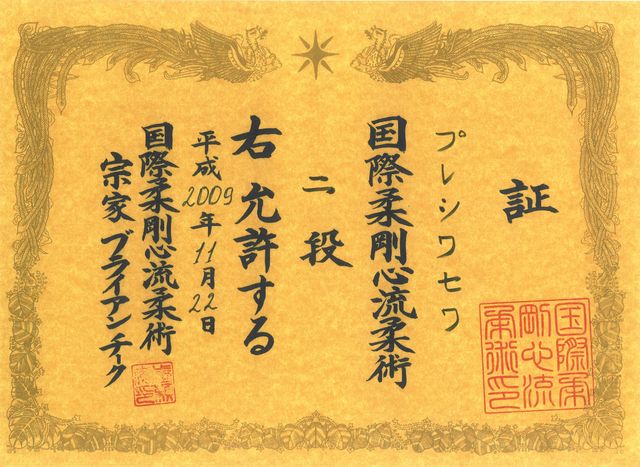 証
プレシワセワ
国際柔剛心流柔術
二段
右允許する
平成2009年11月22日
国際柔剛心流柔術
宗家ブライアンチィク
国際柔
剛心流
柔術印